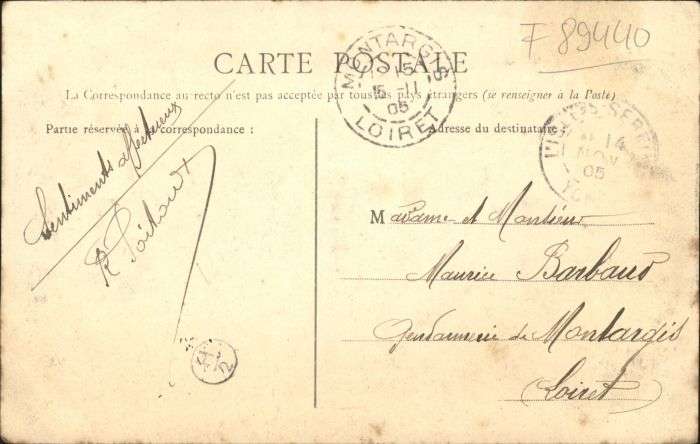 F 89440
CARTE POSTALE
La Correspondance au recto n'est pas acceptée par tous les pays étrangers (se renseigner à la Poste)
Partie réservée à la correspondance :
Adresse du destinataire :
MONTARGIS
15
15 -11
05
LOIRET
14
NOV
05
Sentiments affectueux
R
Madame et Monsieur
Maurice Barbaud
Gendarmerie de Montargis
(Loiret)